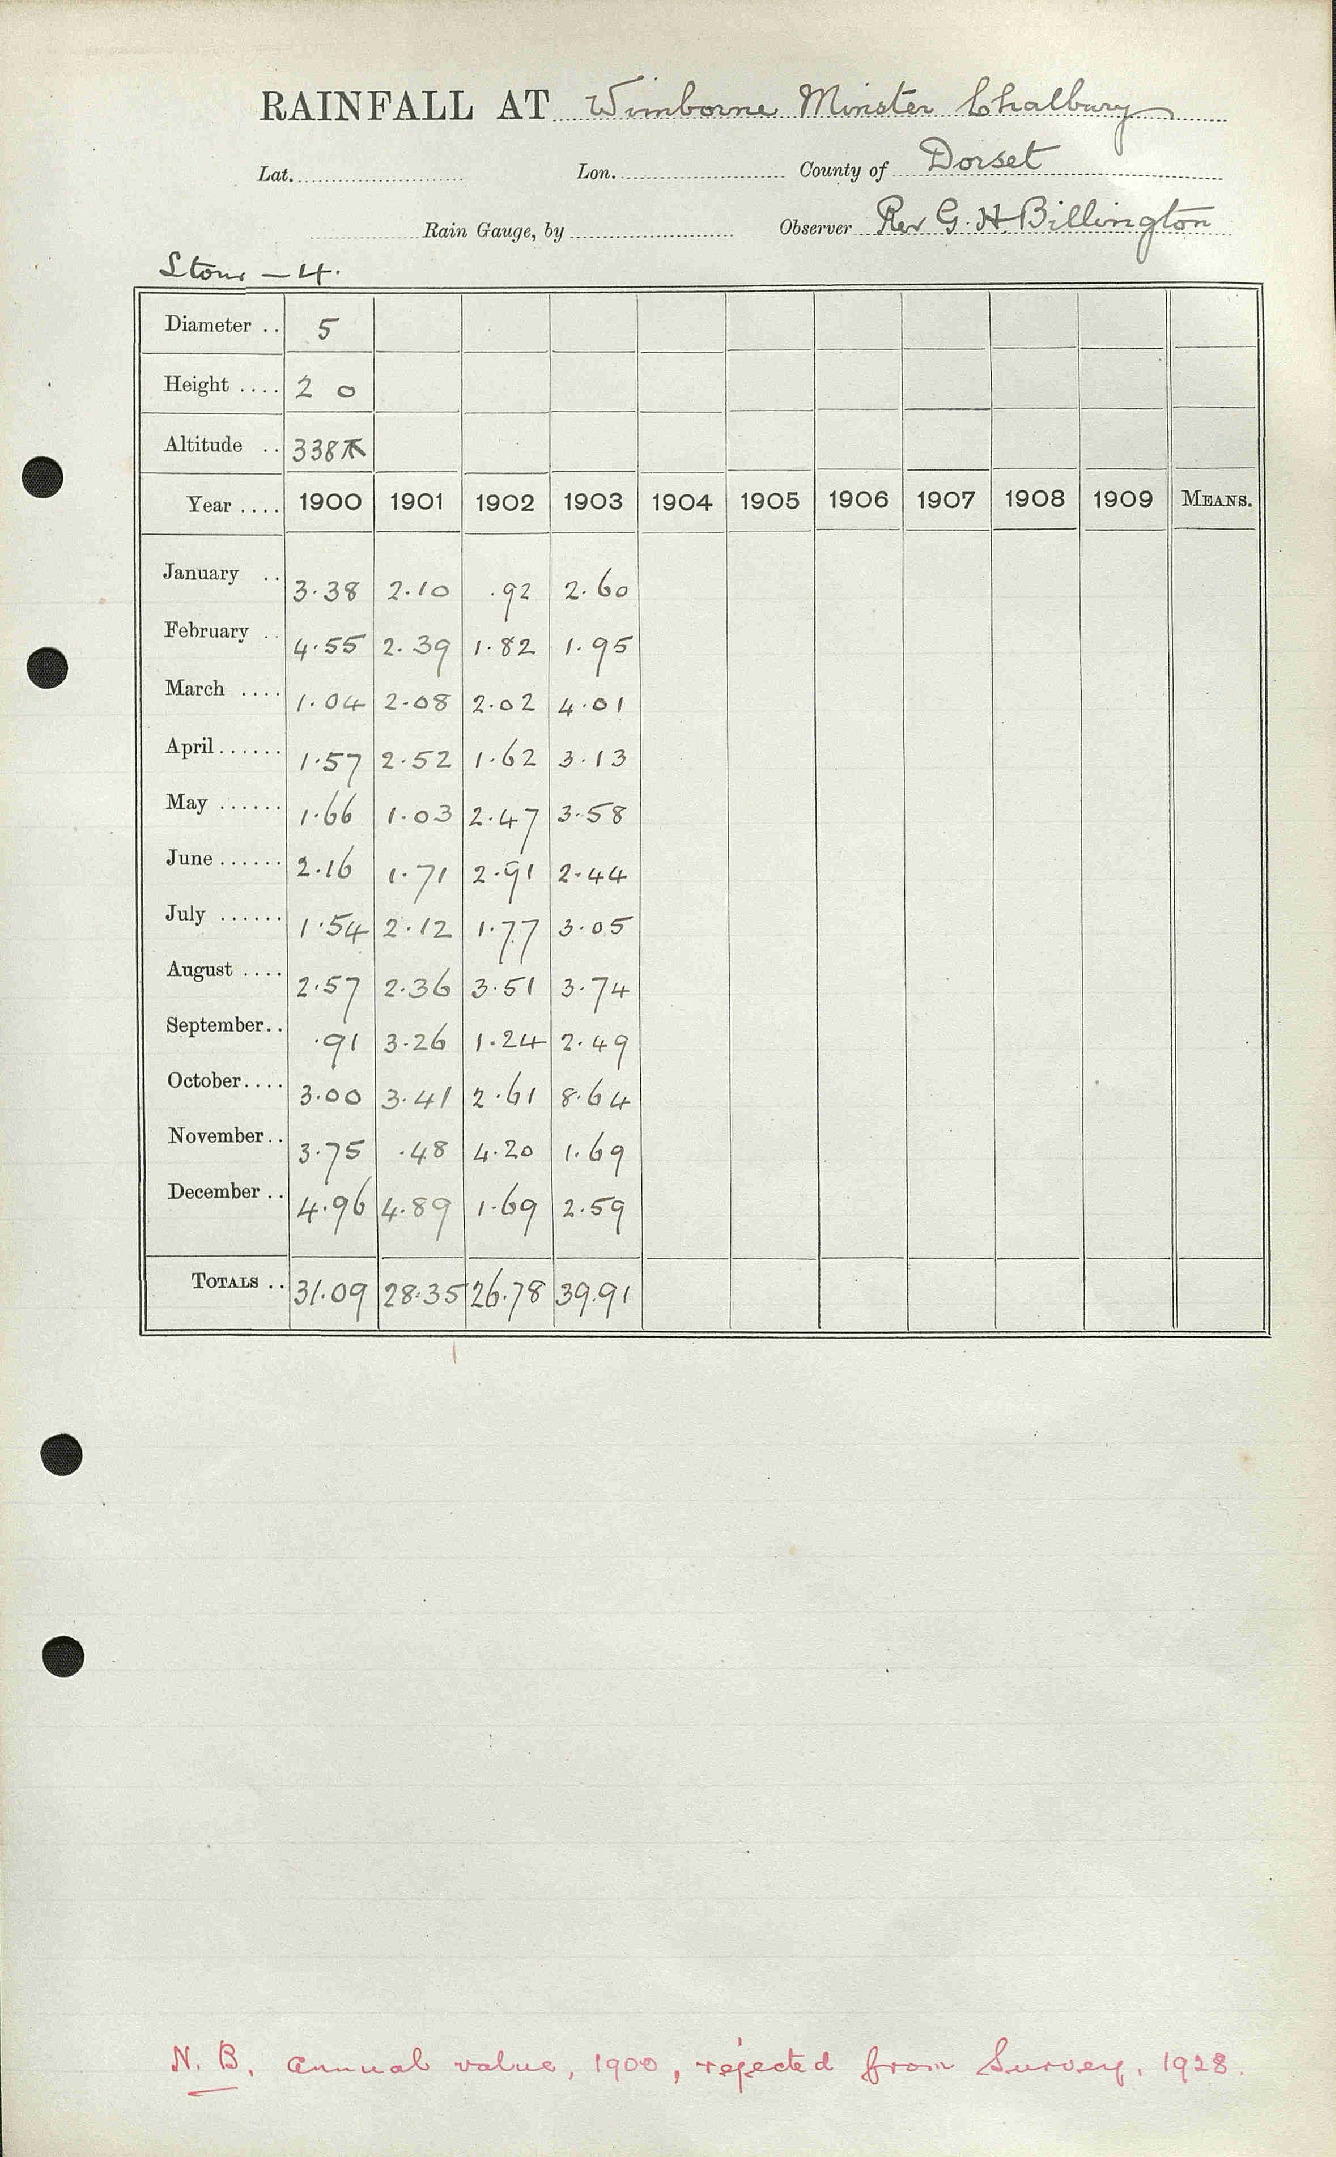 RAINFALL AT Wimborne Minster Chalbury
Lat. Lon. County of Dorset
Rain Gauge, by Observer Rev G. H. Billington
Stour - 4.
Diameter .. 5
Height .... 2 0
Altitude .. 338
Year .... 1900 1901 1902 1903 1904 1905 1906 1907 1908 1909 MEANS.
January .. 3.38 2.10 .92 2.60
February .. 4.55 2.39 1.82 1.95
March .... 1.04 2.08 2.02 4.01
April...... 1.57 2.52 1.62 3.13
May ...... 1.66 1.03 2.47 3.58
June...... 2.16 1.71 2.91 2.44
July ...... 1.54 2.12 1.77 3.05
August .... 2.57 2.36 3.51 3.74
September.. .91 3.26 1.24 2.49
October.... 3.00 3.41 2.61 8.64
November.. 3.75 .48 4.20 1.69
December .. 4.96 4.89 1.69 2.59
TOTALS .. 31.09 28.35 26.78 39.91
N. B. annual value, 1900, rejected from Survey, 1928.